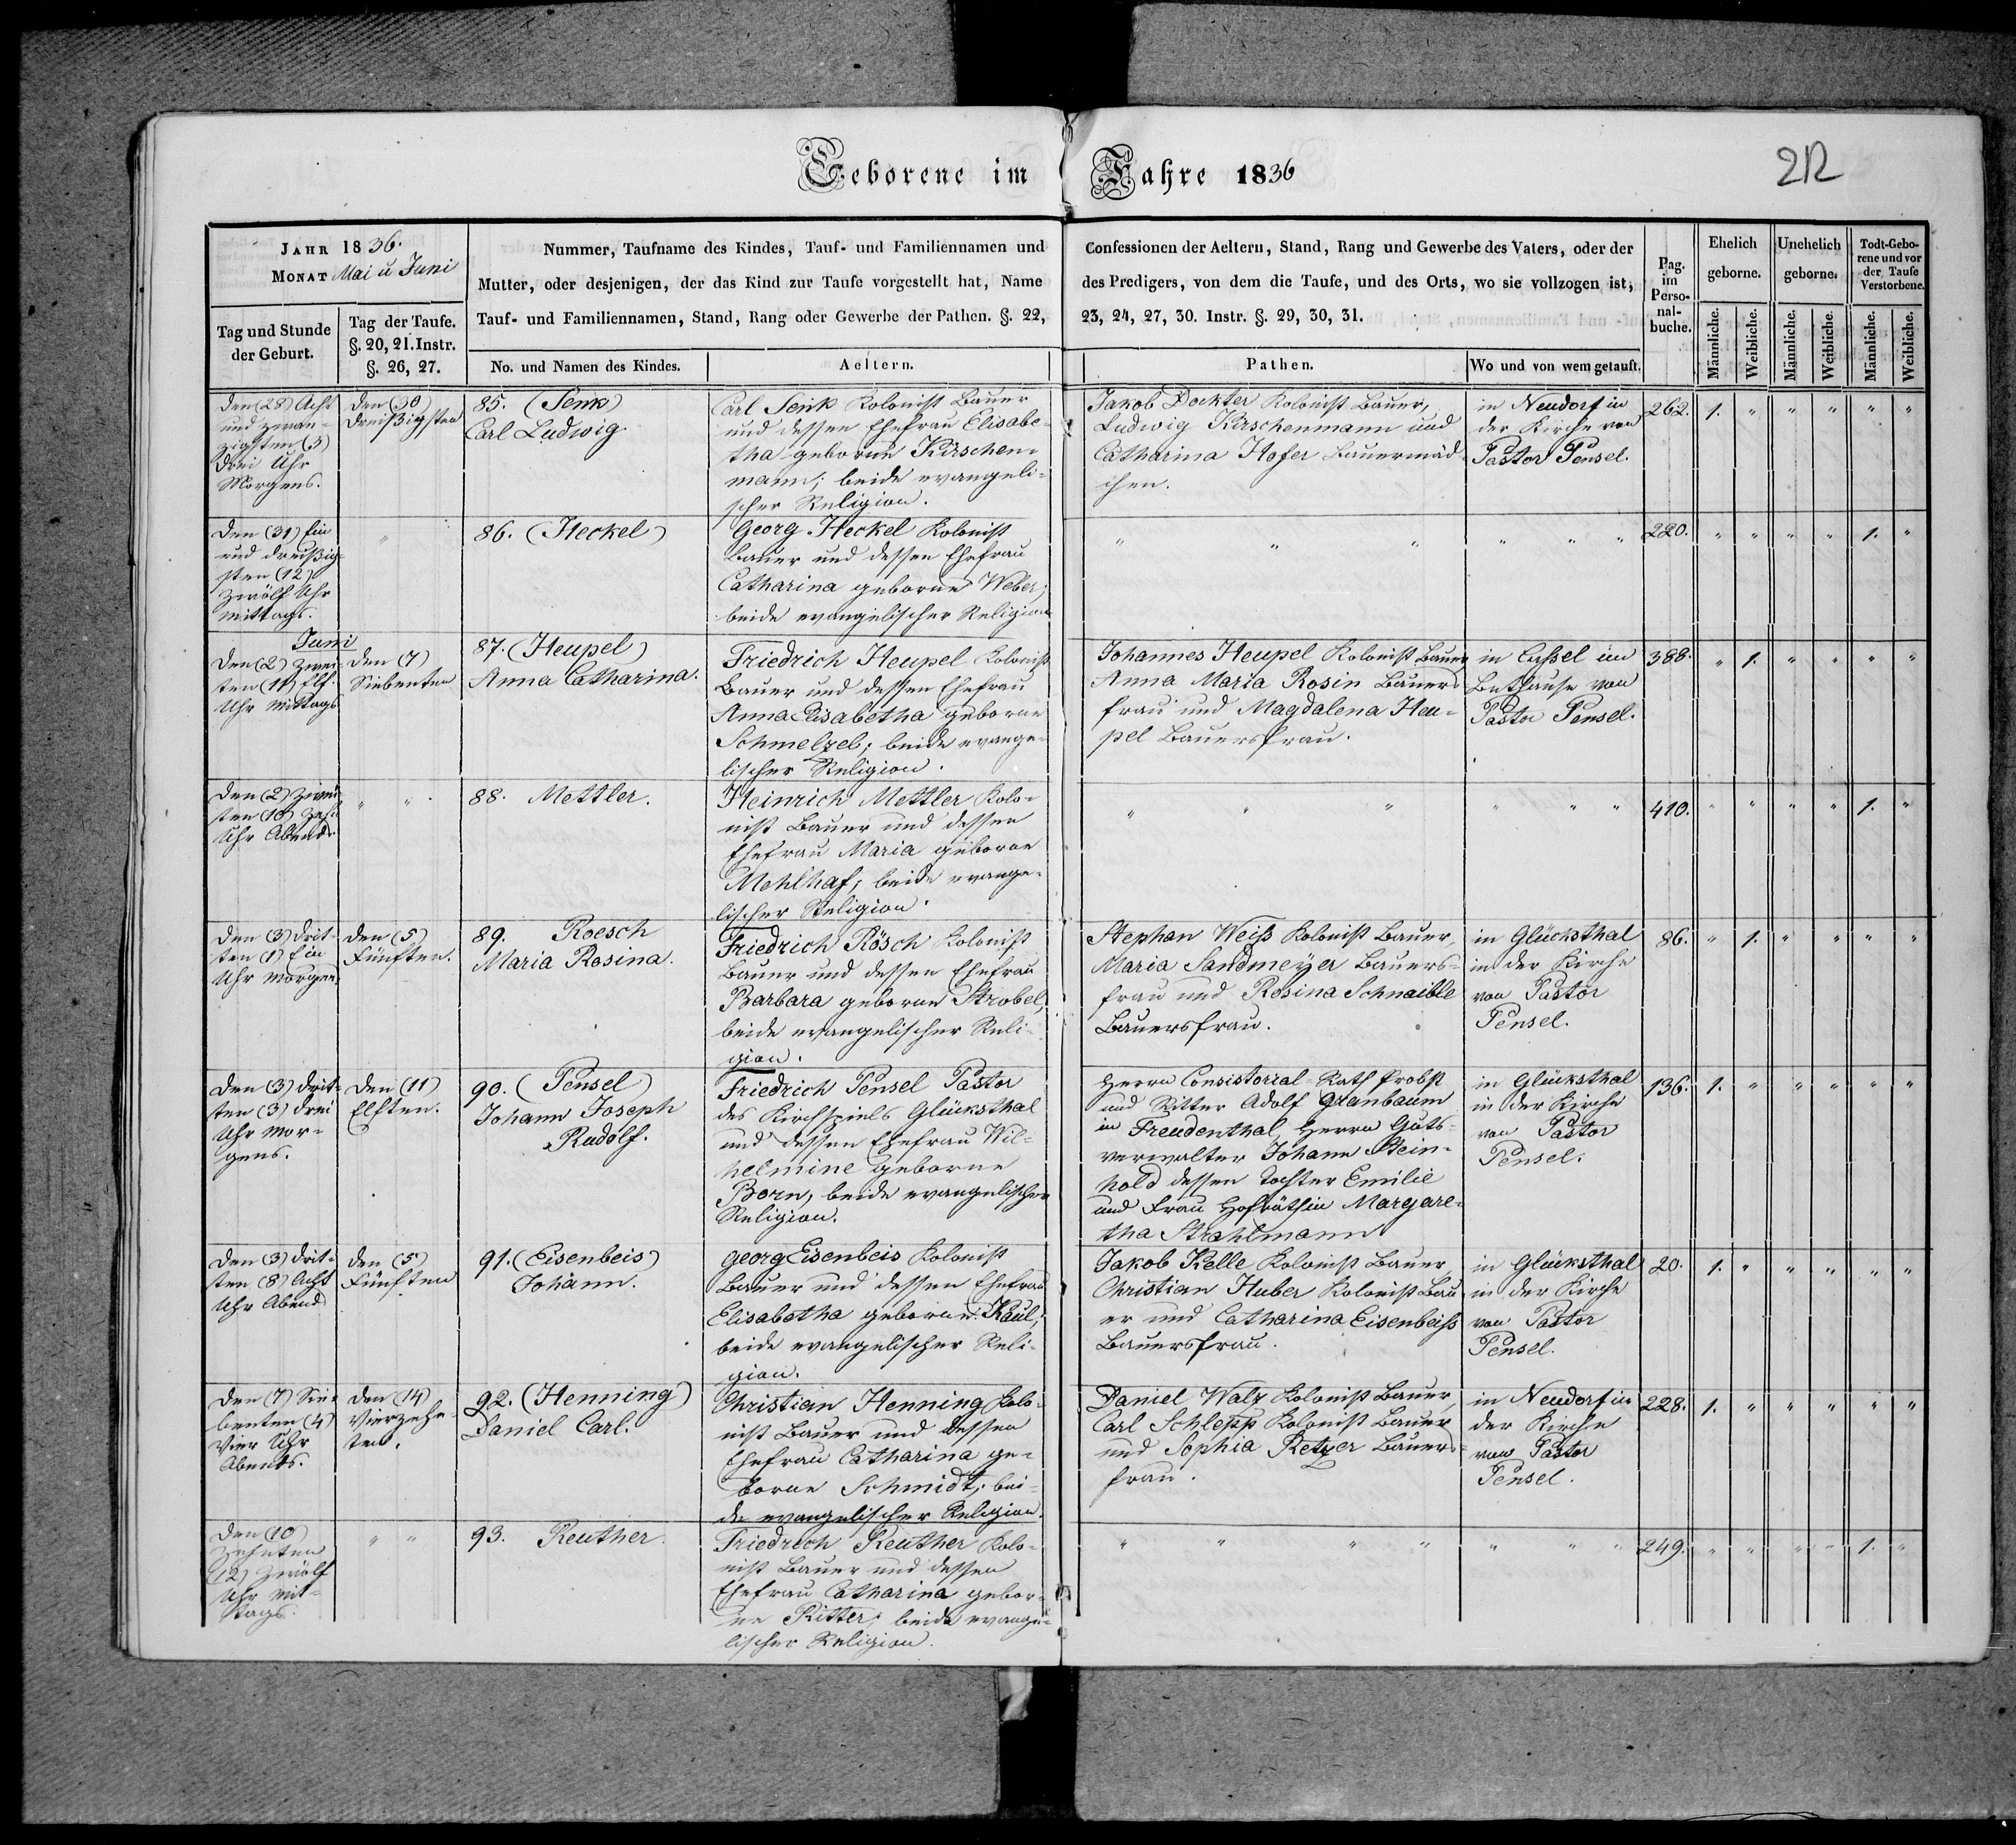 Geborene im Jahre 1836
212
JAHR 1836.
MONAT Mai u Juni
Tag und Stunde
der Geburt.
Tag der Taufe.
§. 20, 21. Instr.
§. 26, 27.
Nummer, Taufname des Kindes, Tauf- und Familiennamen und
Mutter, oder desjenigen, der das Kind zur Taufe vorgestellt hat, Name
Tauf- und Familiennamen, Stand, Rang oder Gewerbe der Pathen. §. 22,
No. und Namen des Kindes.
Aeltern.
Confessionen der Aeltern, Stand, Rang und Gewerbe des Vaters, oder der
des Predigers, von dem die Taufe, und des Orts, wo sie vollzogen ist,
23, 24, 27, 30. Instr. §. 29, 30, 31.
Pathen.
Wo und von wem getauft.
Pag.
im
Perso-
nal-
buche.
Ehelich
geborne.
Unehelich
geborne.
Todt-Gebo-
rene und vor
der Taufe
Verstorbene.
Männliche.
Weibliche.
Männliche.
Weibliche.
Männliche.
Weibliche.
Den (28) Acht
und zwan-
zigsten (3)
Drei Uhr
Morgens.
Den (30)
Dreißigsten
85. (Senk)
Carl Ludwig.
Carl Senk Kolonist Bauer
und dessen Ehefrau Elisabe-
tha geborne Kirschen-
mann; beide evangeli-
scher Religion.
Jakob Dockter Kolonist Bauer,
Ludwig Kirschenmann und
Catharina Hofer Bauermäd-
chen.
in Neudorf in
der Kirche von
Pastor Pensel.
262. 1. " " " " "
Den (31) Ein
und dreißig-
sten (12)
Zwölf Uhr
Mittags.
"
86. (Heckel)
Georg Heckel Kolonist
Bauer und dessen Ehefrau
Catharina geborne Weber;
beide evangelischer Religion
" " " " " "
220. " " " " 1. "
Juni
Den (2) Zwei-
ten (11) Elf
Uhr Mittags
Den (7)
Siebenten
87. (Heupel)
Anna Catharina.
Friedrich Heupel Kolonist
Bauer und dessen Ehefrau
Anna Elisabetha geborne
Schmelzel; beide evange-
lischer Religion.
Johannes Heupel Kolonist Bauer,
Anna Maria Rosin Bauers
frau und Magdalena Heu-
pel Bauersfrau.
in Cassel im
Bethause von
Pastor Pensel.
388. " 1. " " " "
Den (2) Zwei-
ten (10) Zehn
Uhr Abends.
" "
88. Mettler.
Heinrich Mettler Kolo-
nist Bauer und dessen
Ehefrau Maria geborne
Mehlhaf; beide evange-
lischer Religion.
" " " " " "
410. " " " " 1. "
Den (3) Drit-
ten (1) Ein
Uhr Morgens
Den (5)
Fünften.
89. Roesch
Maria Rosina.
Friedrich Rösch Kolonist
Bauer und dessen Ehefrau
Barbara geborne Strobel,
beide evangelischer Reli-
gion.
Stephan Weiß Kolonist Bauer,
Maria Sandmeyer Bauers-
frau und Rosina Schnaible
Bauersfrau.
in Glücksthal
in der Kirche
von Pastor
Pensel.
86. " 1. " " " "
Den (3) Drit-
ten (3) Drei
Uhr Mor-
gens.
Den (11)
Elften.
90. (Pensel)
Johann Joseph
Rudolf.
Friedrich Pensel Pastor
des Kirchspiels Glücksthal
und dessen Ehefrau Wil-
helmine geborne
Born, beide evangelischer
Religion.
Herrn Consistorial-Rath Probst
und Ritter Adolf Granbaum
in Freudenthal, Herrn Guts-
verwalter Johann Stein-
hold dessen Tochter Emilie
und Frau Hofräthin Margare-
tha Strahlmann
in Glücksthal
in der Kirche
von Pastor
Pensel.
136. 1. " " " " "
Den (3) Drit-
ten (8) Acht
Uhr Abend
Den (5)
Fünften
91. (Eisenbeis)
Johann.
Georg Eisenbeis Kolonist
Bauer und dessen Ehefrau
Elisabetha geborne Kaul;
beide evangelischer Reli-
gion.
Jakob Kelle Kolonist Bauer,
Christian Huber Kolonist Bau
er und Catharina Eisenbeiß
Bauersfrau.
in Glücksthal
in der Kirche
von Pastor
Pensel.
20. 1. " " " " "
Den (7) Sie-
benten (4)
Vier Uhr
Abends.
Den (14)
Vierzehn-
ten.
92. (Henning)
Daniel Carl.
Christian Henning Kolo-
nist Bauer und dessen
Ehefrau Catharina ge-
borne Schmidt, bei-
de evangelischer Religion.
Daniel Walz Kolonist Bauer,
Carl Schlepp Kolonist Bauer
und Sophia Retzer Bauers-
frau.
in Neudorf in
der Kirche
von Pastor
Pensel.
228. 1. " " " " "
Den (10)
Zehnten
(12) Zwölf
Uhr Mit-
tags.
" "
93. Reuther.
Friedrich Reuther Kolo-
nist Bauer und dessen
Ehefrau Catharina gebor-
ne Ritter; beide evange-
lischer Religion.
" " " " " " "
249. " " " " 1. "